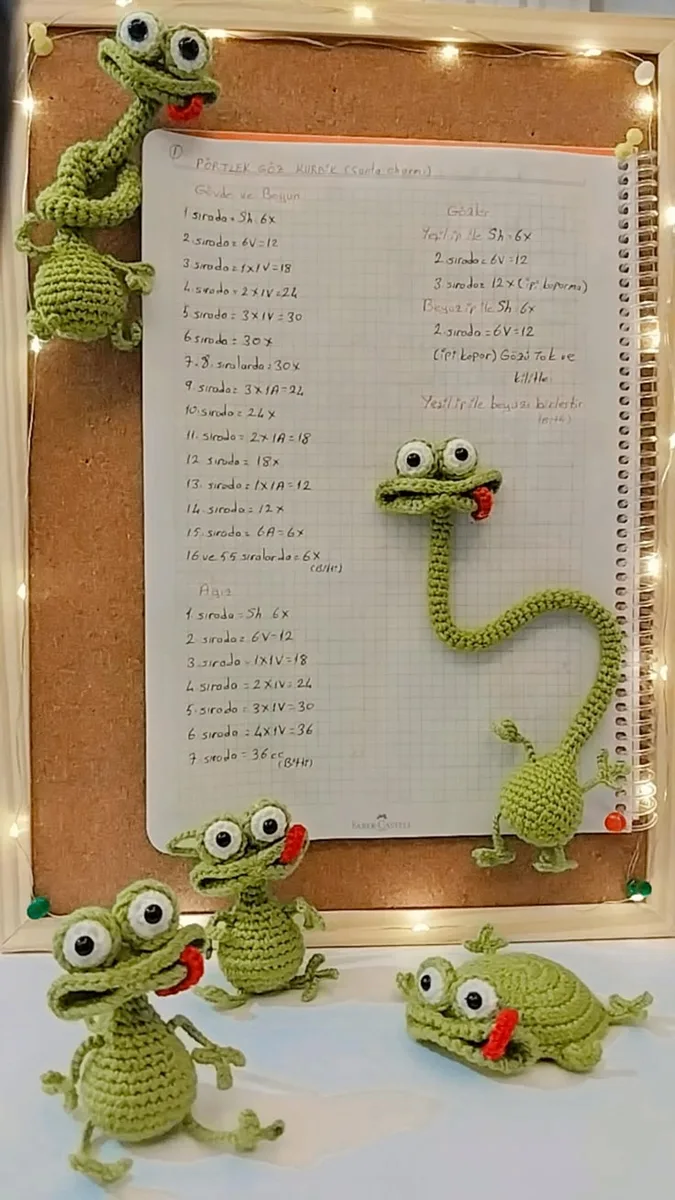 1
PÖRTLEK GÖZ KURBİK (Sunta.charmı)
Gövde ve Boyun
1 sırada = Sh 6x
2. sırada = 6V = 12
3. sırada = 1x1V = 18
4. sırada = 2x1V = 24
5. sırada = 3x1V = 30
6 sırada = 30x
7. 8. sıralarda = 30x
9. sırada = 3x1A = 24
10. sırada = 24x
11. sırada = 2x1A = 18
12 sırada = 18x
13. sırada = 1x1A = 12
14. sırada = 12x
15. sırada = 6A = 6x
16 ve 55 sıralarda = 6x
(Bitir)
Ağız
1. sırada = Sh 6x
2. sırada = 6V = 12
3. sırada = 1x1V = 18
4. sırada = 2x1V = 24
5. sırada = 3x1V = 30
6 sırada = 4x1V = 36
7. sırada = 36 cc
(Bitir)
Gözler
Yeşil ip ile Sh = 6x
2. sırada = 6V = 12
3. sırada = 12x (ipi koparma)
Beyaz ip ile Sh 6x
2. sırada = 6V = 12
(ipi kopar) Gözü Tak ve
kilitle
Yeşil ip ile beyazı birleştir
(Bitir)
FABER-CASTELL